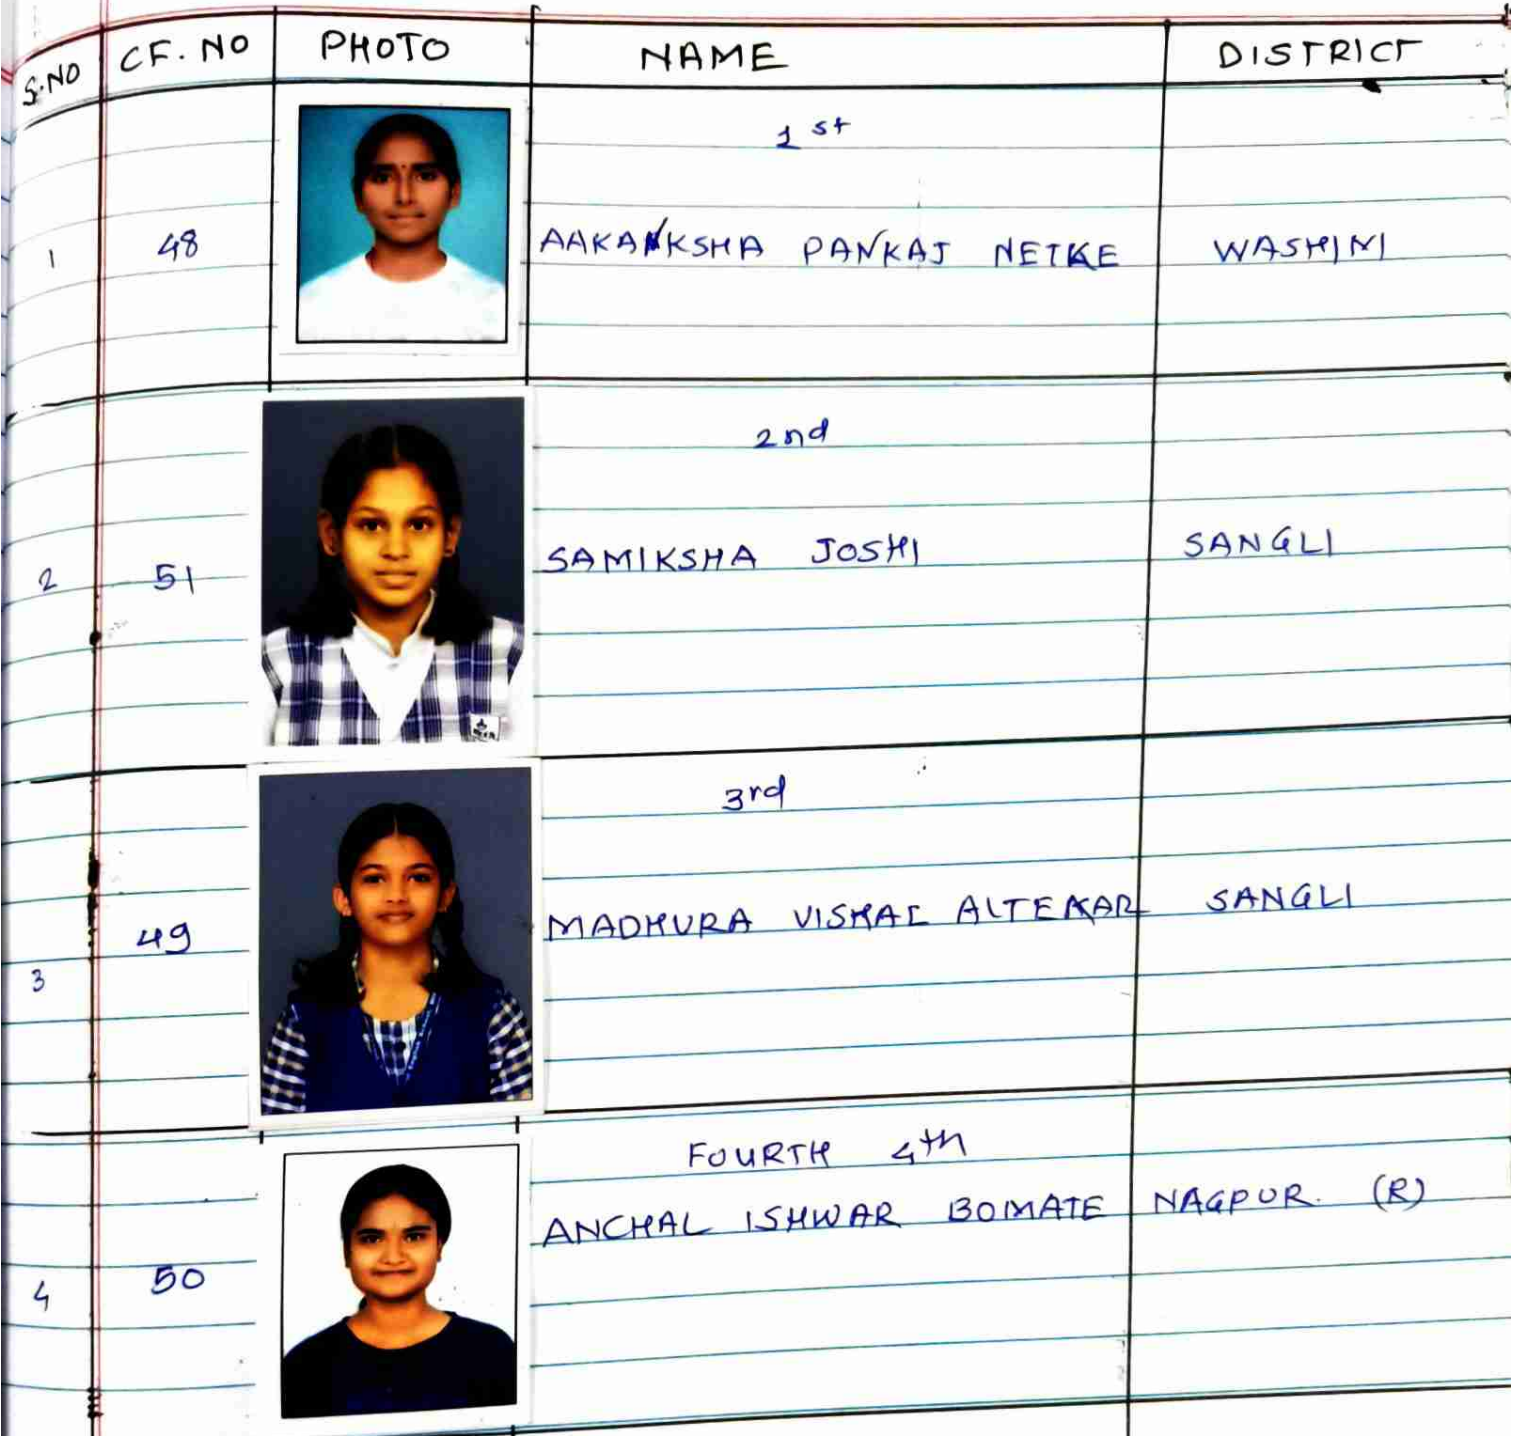 S.NO CF. NO PHOTO NAME DISTRICT
1st
1 48 AAKANKSHA PANKAJ NETKE WASHIM
2nd
2 51 SAMIKSHA JOSHI SANGLI
3rd
3 49 MADHURA VISHAL ALTEKAR SANGLI
FOURTH 4th
4 50 ANCHAL ISHWAR BOMATE NAGPUR. (R)